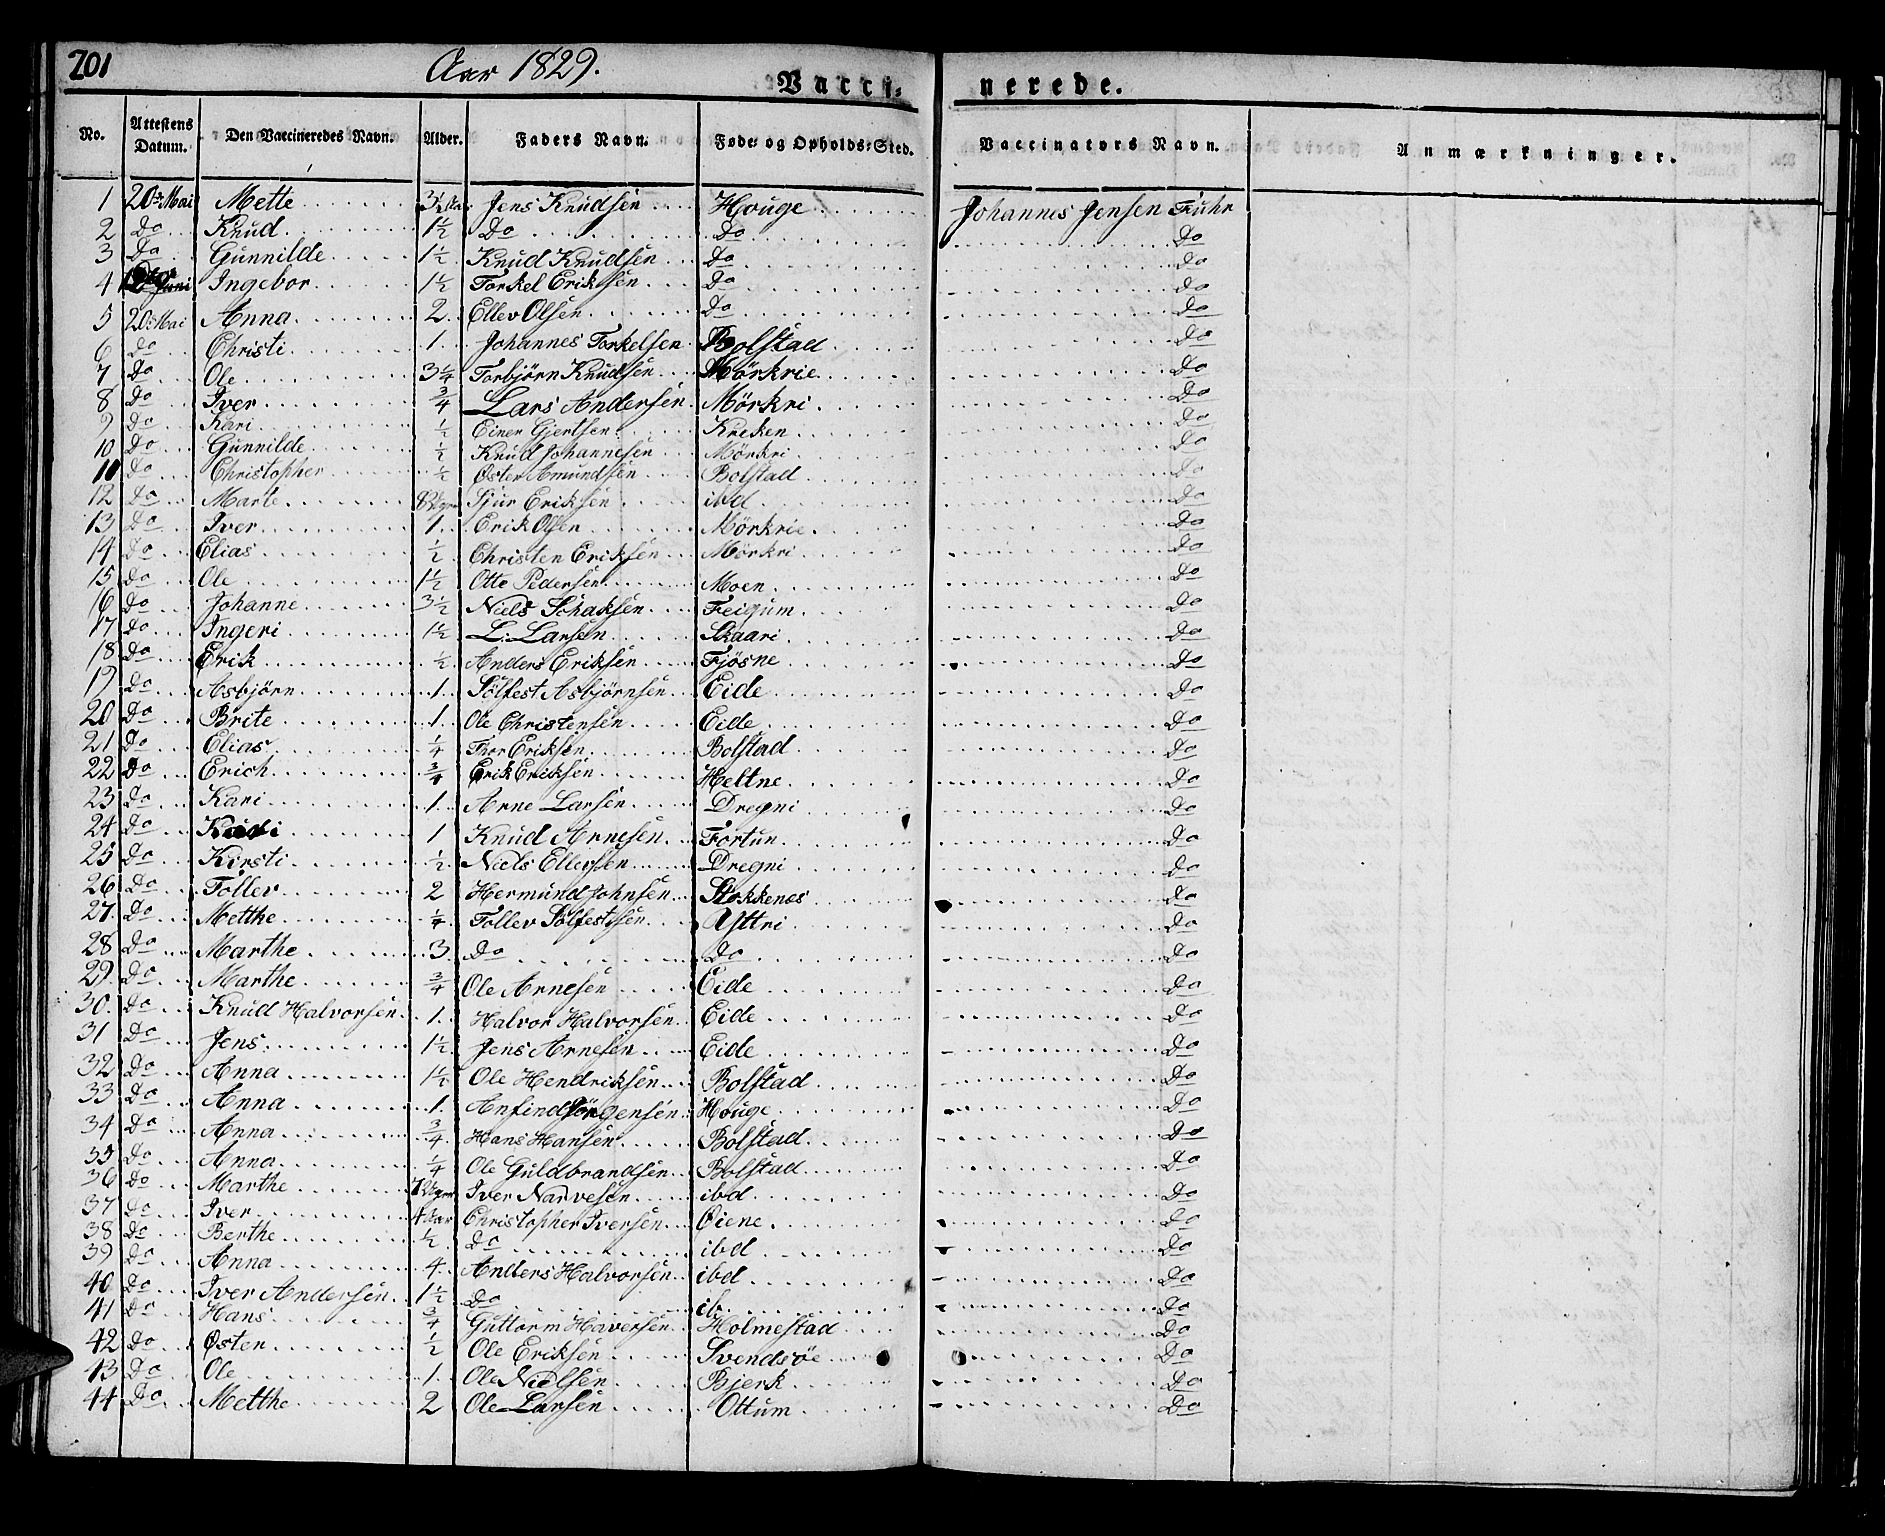 201 Aar 1829.
Vacci- nerede.
No. Attestens Datum. Den Vaccineredes Navn. Alder. Faders Navn. Føde- og Opholds-Sted. Vaccinators Navn. Anmærkninger.
1 20de Mai Mette 3½ Aar Jens Knudsen Houge Johannes Jensen Fuhr
2 Do Knud 1½ Do Do Do
3 Do Gunnilde 1½ Knud Knudsen Do Do
4 Juni Ingebor 1½ Torkel Eriksen Do Do
5 20 Mai Anna 2 Ellev Olsen Do Do
6 Do Christi 1 Johannes Torkelsen Bolstad Do
7 Do Ole 3¼ Torbjørn Knudsen Mörkrie Do
8 Do Iver ¾ Lars Andersen Mörkri Do
9 Do Kari ½ Einer Gjertsen Kreken Do
10 Do Gunnilde ½ Knud Johannesen Mörkri Do
11 Do Christopher ½ Östen Amundsen Bolstad Do
12 Do Marte Sjur Eriksen ibd Do
13 Do Iver 1 Erik Olsen Mörkrie Do
14 Do Elias ½ Christen Eriksen Mörkri Do
15 Do Ole 1½ Otto Pedersen Moen Do
16 Do Johanne 3½ Niels Schaksen Feigum Do
17 Do Ingeri 1½ L. Larsen Skaari Do
18 Do Erik ½ Anders Eriksen Fjösne Do
19 Do Asbjørn 1 Sölfest Asbjörnsen Eide Do
20 Do Brite 1 Ole Christensen Eide Do
21 Do Elias ¼ Thor Eriksen Bolstad Do
22 Do Erich ¾ Erik Eriksen Heltne Do
23 Do Kari 1 Arne Larsen Dregni Do
24 Do 1 Knud Arnesen Fortun Do
25 Do Kirsti ½ Niels Ellevsen Dregni Do
26 Do Tollev 2 Hermund Johnsen Stokkenes Do
27 Do Metthe ¼ Tollev Sölfestsen Do
28 Do Marthe 3 Do Do Do
29 Do Marthe ¾ Ole Arnesen Eide Do
30. Do Knud Halvorsen 1 Halvor Halvorsen Eide Do
31 Do Jens 1½ Jens Arnesen Eide Do
32 Do Anna 1½ Ole Hendriksen Bolstad Do
33 Do Anna 1 Anfind Jörgensen Houge Do
34 Do Anna ¾ Hans Hansen Bolstad Do
35 Do Anna ¼ Ole Guldbrandsen Bolstad Do
36 Do Marthe Iver Narvesen ibd Do
37 Do Iver 4 Aar Christopher Iversen Øiene Do
38 Do Berthe ½ Do ibd Do
39 Do Anna 4 Anders Halvorsen ibd Do
40 Do Iver Andersen 1½ Do ib Do
41 Do Hans ¾ Guttorm Haversen Holmestad Do
42 Do Østen ½ Ole Eriksen Svendsøe Do
43 Do Ole 1 Ole Nielsen Bjerk Do
44 Do Metthe 2 Ole Larsen Ottum Do